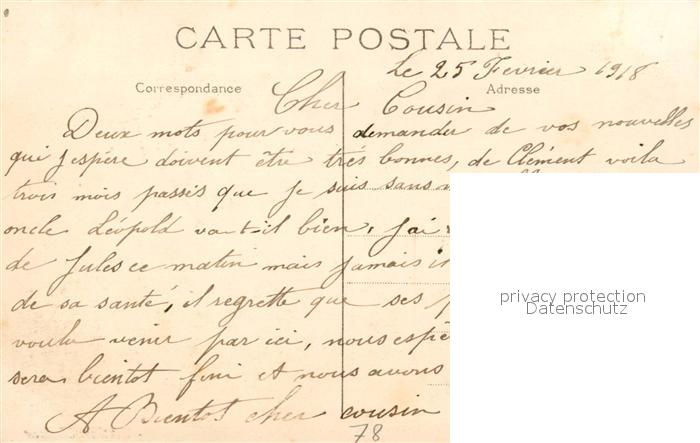 CARTE POSTALE
Le 25 Fevrier 1918
Correspondance
Adresse
Cher Cousin
Deux mots pour vous demander de vos nouvelles
qui j'espère doivent être très bonnes, de Clément voila
trois mois passés que je suis sans
oncle Léopold va-t-il bien, j'ai
de Jules ce matin mais jamais
de sa santé, il regrette que ses
voulu venir par ici, nous
sera bientot fini et nous avons
A Bientot cher cousin
78
privacy protection
Datenschutz